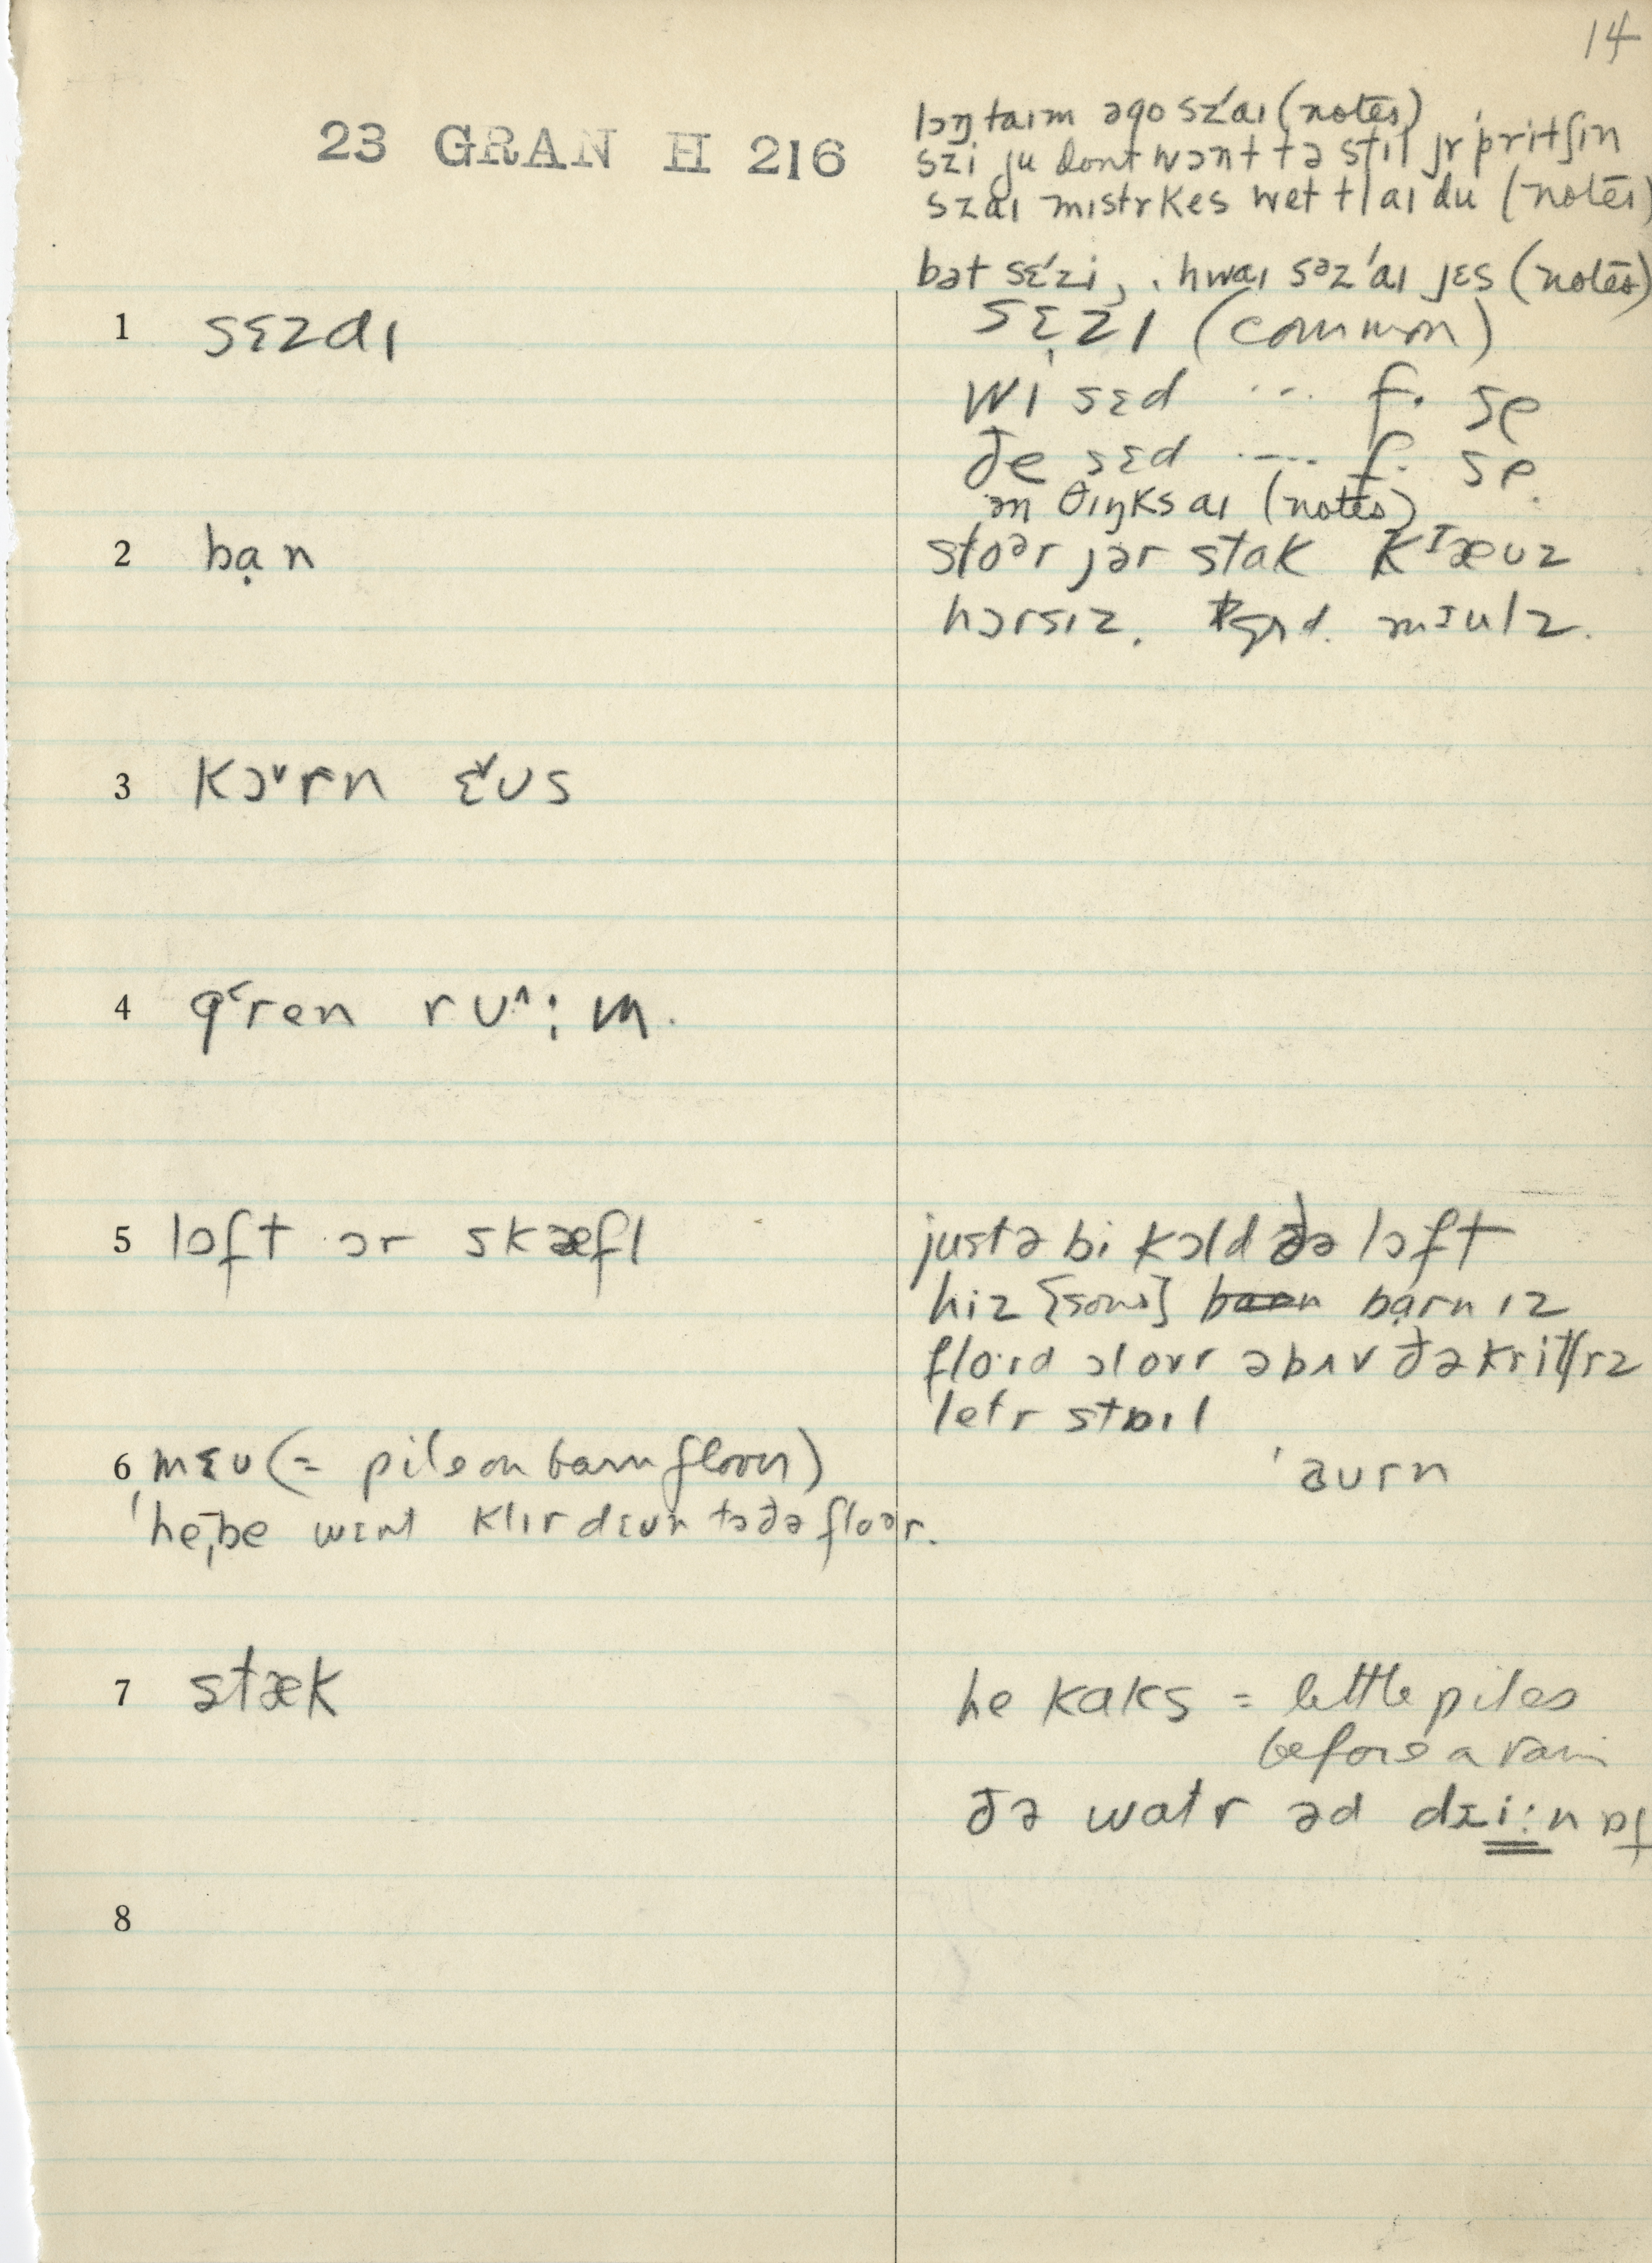 14
23 GRAN H 216
lɔŋ taɪm əgo sz'aɪ (notes)
szi ju dont wɔnt tə stil jr pritʃɪn
szaɪ mɪstr kes wet tl aɪ du (notes)
bət sɛ'zi, hwaɪ səz'aɪ jɛs (notes)
1 sɛzaɪ
sɛ̣zɪ (common)
wi sɛd ... f. se
ðe sɛd ... f. se
ən θɪŋks aɪ (notes)
2 bạn
stoər jər stak kᴵæʊz
hɔrsɪz. mᴵulz.
3 kɔ˅rn ɛ˅ʊs
4 g˂ren rʊ˄:m.
5 lɔft ɔr skæfl
justə bi kɔld ðə lɔft
hiz [sons] bạrn ɪz
floɪd ɔl ovr əbʌv ðə kritʃrz
letr stɒɪl
6 mɛʊ (= pile on barn floor)
'aʊrn
'he,be wɛnt klɪr dɛʊn tə ðə floər.
7 stæk
he kaks = little piles
before a rain
ðə watr əd dɪi:n ɒf
8